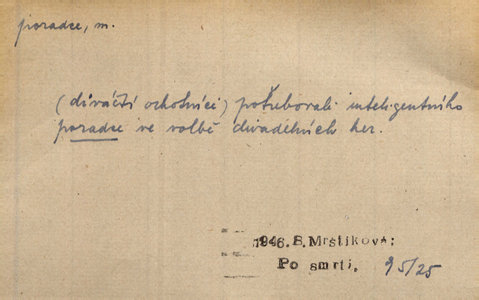 poradce, m.
(diváčtí ochotníci) potřebovali inteligentního
poradce ve volbě divadelních her.
1946. B. Mrštíková:
Po smrti, 95/25